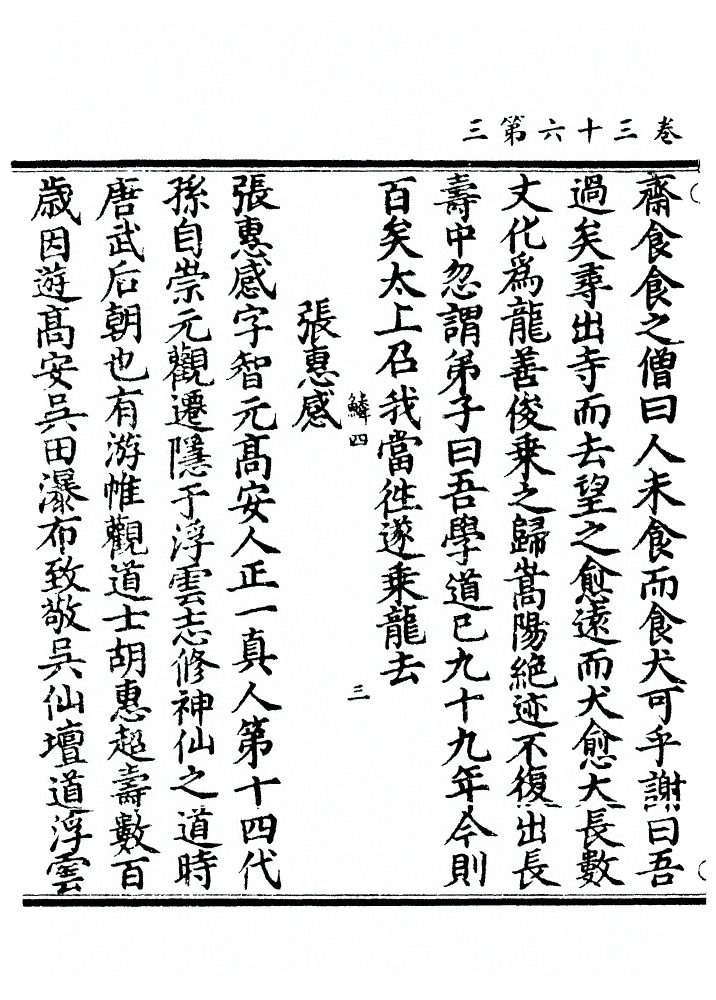 卷三十六第三
齋食食之僧曰人未食而食犬可乎謝曰吾
過矣尋出寺而去望之愈遠而犬愈大長數
丈化爲龍善俊乘之歸嵩陽絶迹不復出長
壽中忽謂弟子曰吾學道已九十九年今則
百矣太上召我當徃遂乘龍去
鱗四 三
張惠感
張惠感字智元髙安人正一真人第十四代
孫自崇元觀遷隱于浮雲志修神仙之道時
唐武后朝也有游帷觀道士胡惠超壽數百
歳因遊髙安吳田瀑布致敬吳仙壇道浮雲